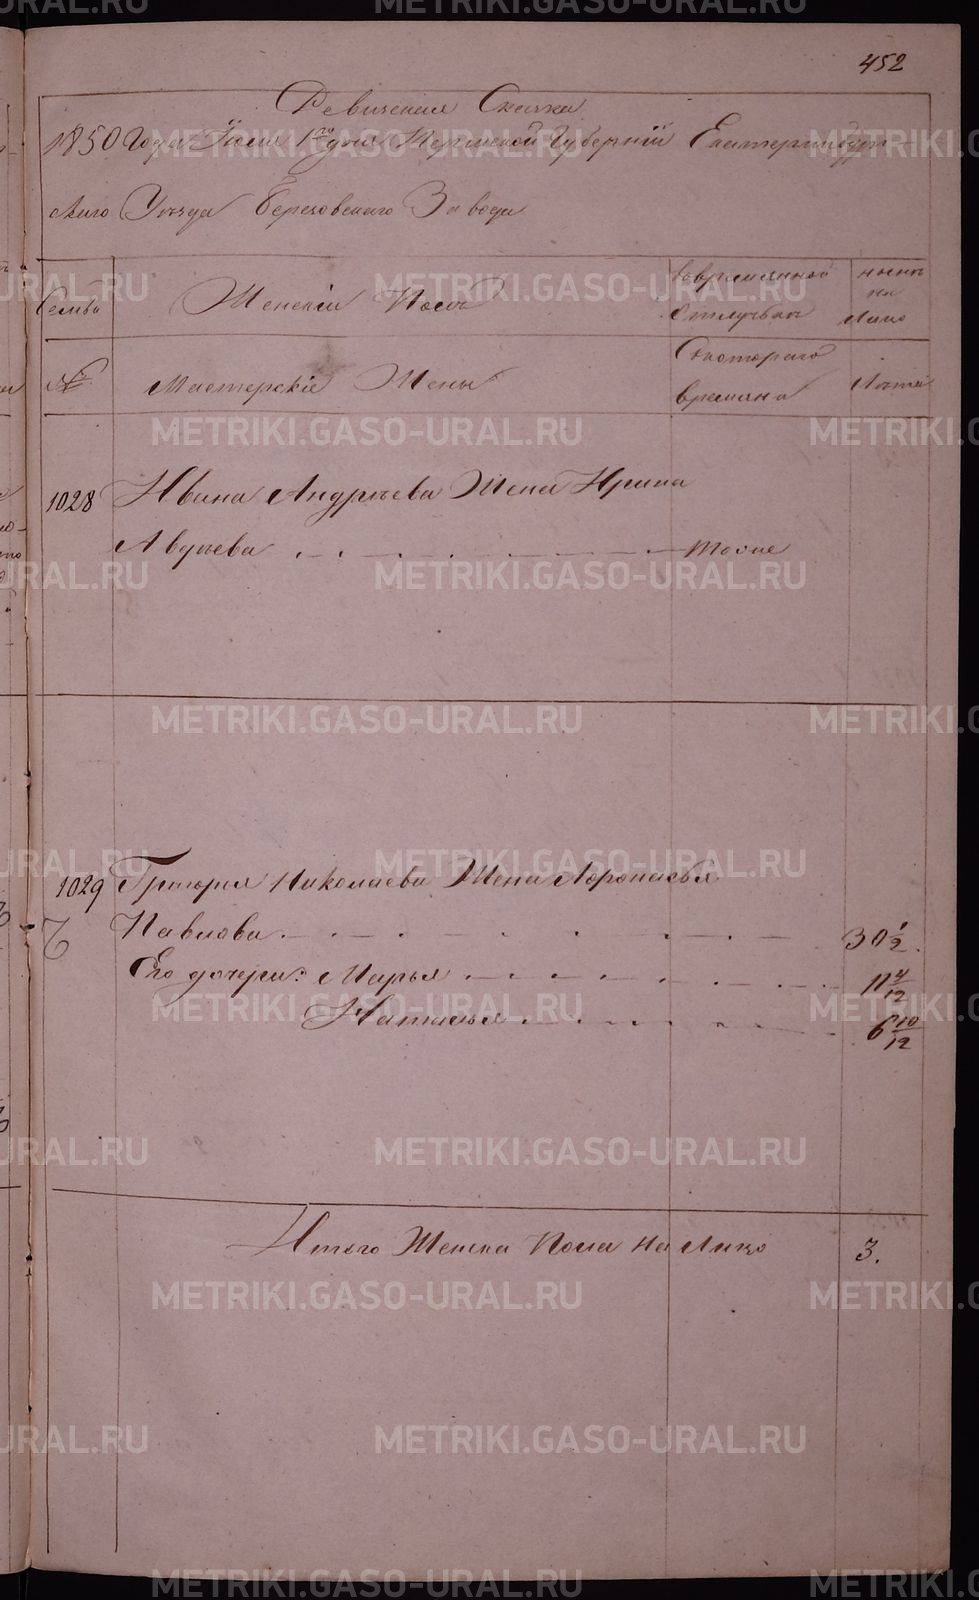 452
Ревизская Сказка
1850 Года Июля 1го дня Пермской Губернїи Екатеринбург-
скаго Уѣзда Березовскаго Завода
Семьи
Женскiй Полъ
Во временной
Отлучкѣ
нынѣ
на
Лицо
№
Мастерскiе Жены
Скотораго
времяни
Лѣта
1028 Ивана Андрѣева Жена Ирина
Авдѣева тоже
1029 Григорья Николаева Жена Афонасья
Павлова 30 1/2
Его дочери: Марья 11 4/12
Наталья 6 10/12
Итого Женска Пола на Лицо 3.
METRIKI.GASO-URAL.RU